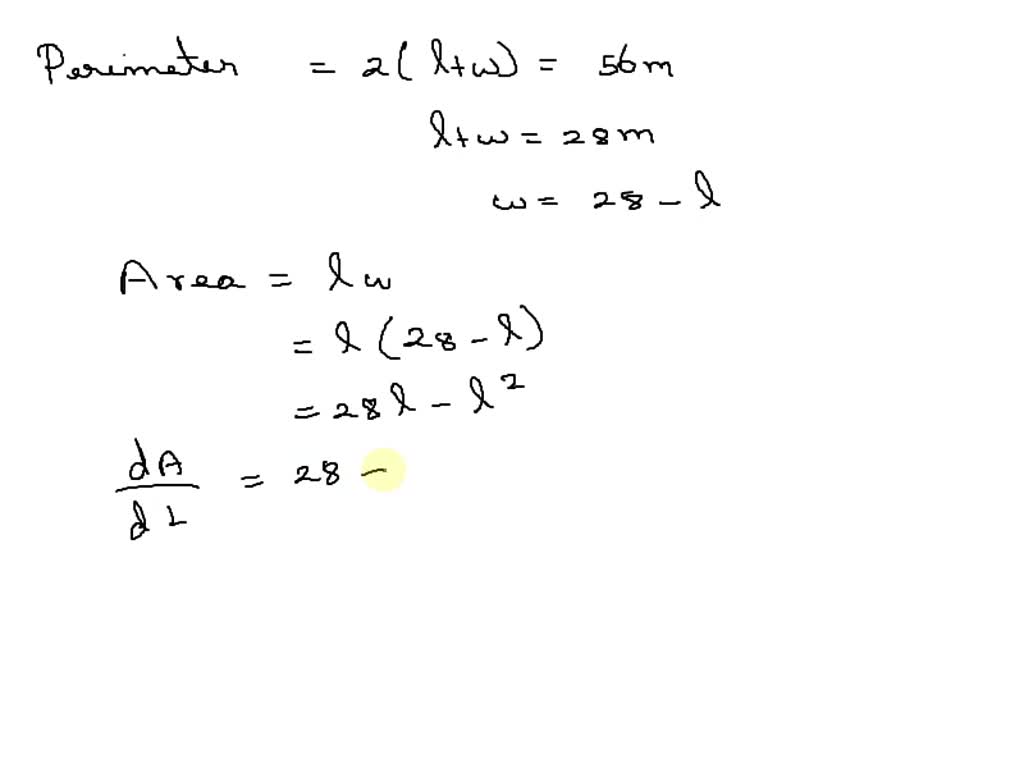 Perimeter = 2(l+w) = 56m
l+w = 28m
w = 28 - l
Area = lw
= l(28 - l)
= 28l - l²
dA/dL = 28 -